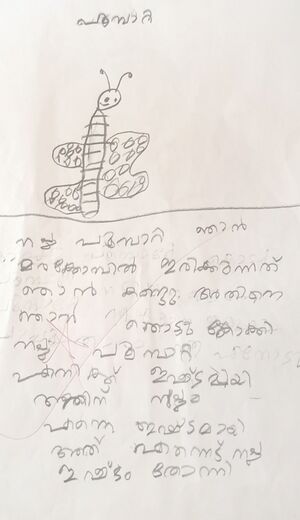 പൂമ്പാറ്റ
നല്ല പൂമ്പാറ്റ ഞാൻ
മരക്കൊമ്പിൽ ഇരിക്കുന്നത്
ഞാൻ കണ്ടു. അതിനെ
ഞാൻ തൊട്ടു നോക്കി
നല്ല പൂമ്പാറ്റ
എനിക്ക് ഇഷ്ടമായി
അതിന്
എന്നെ ഇഷ്ടമായി
അത് എന്നോട് നല്ല
ഇഷ്ടം തോന്നി